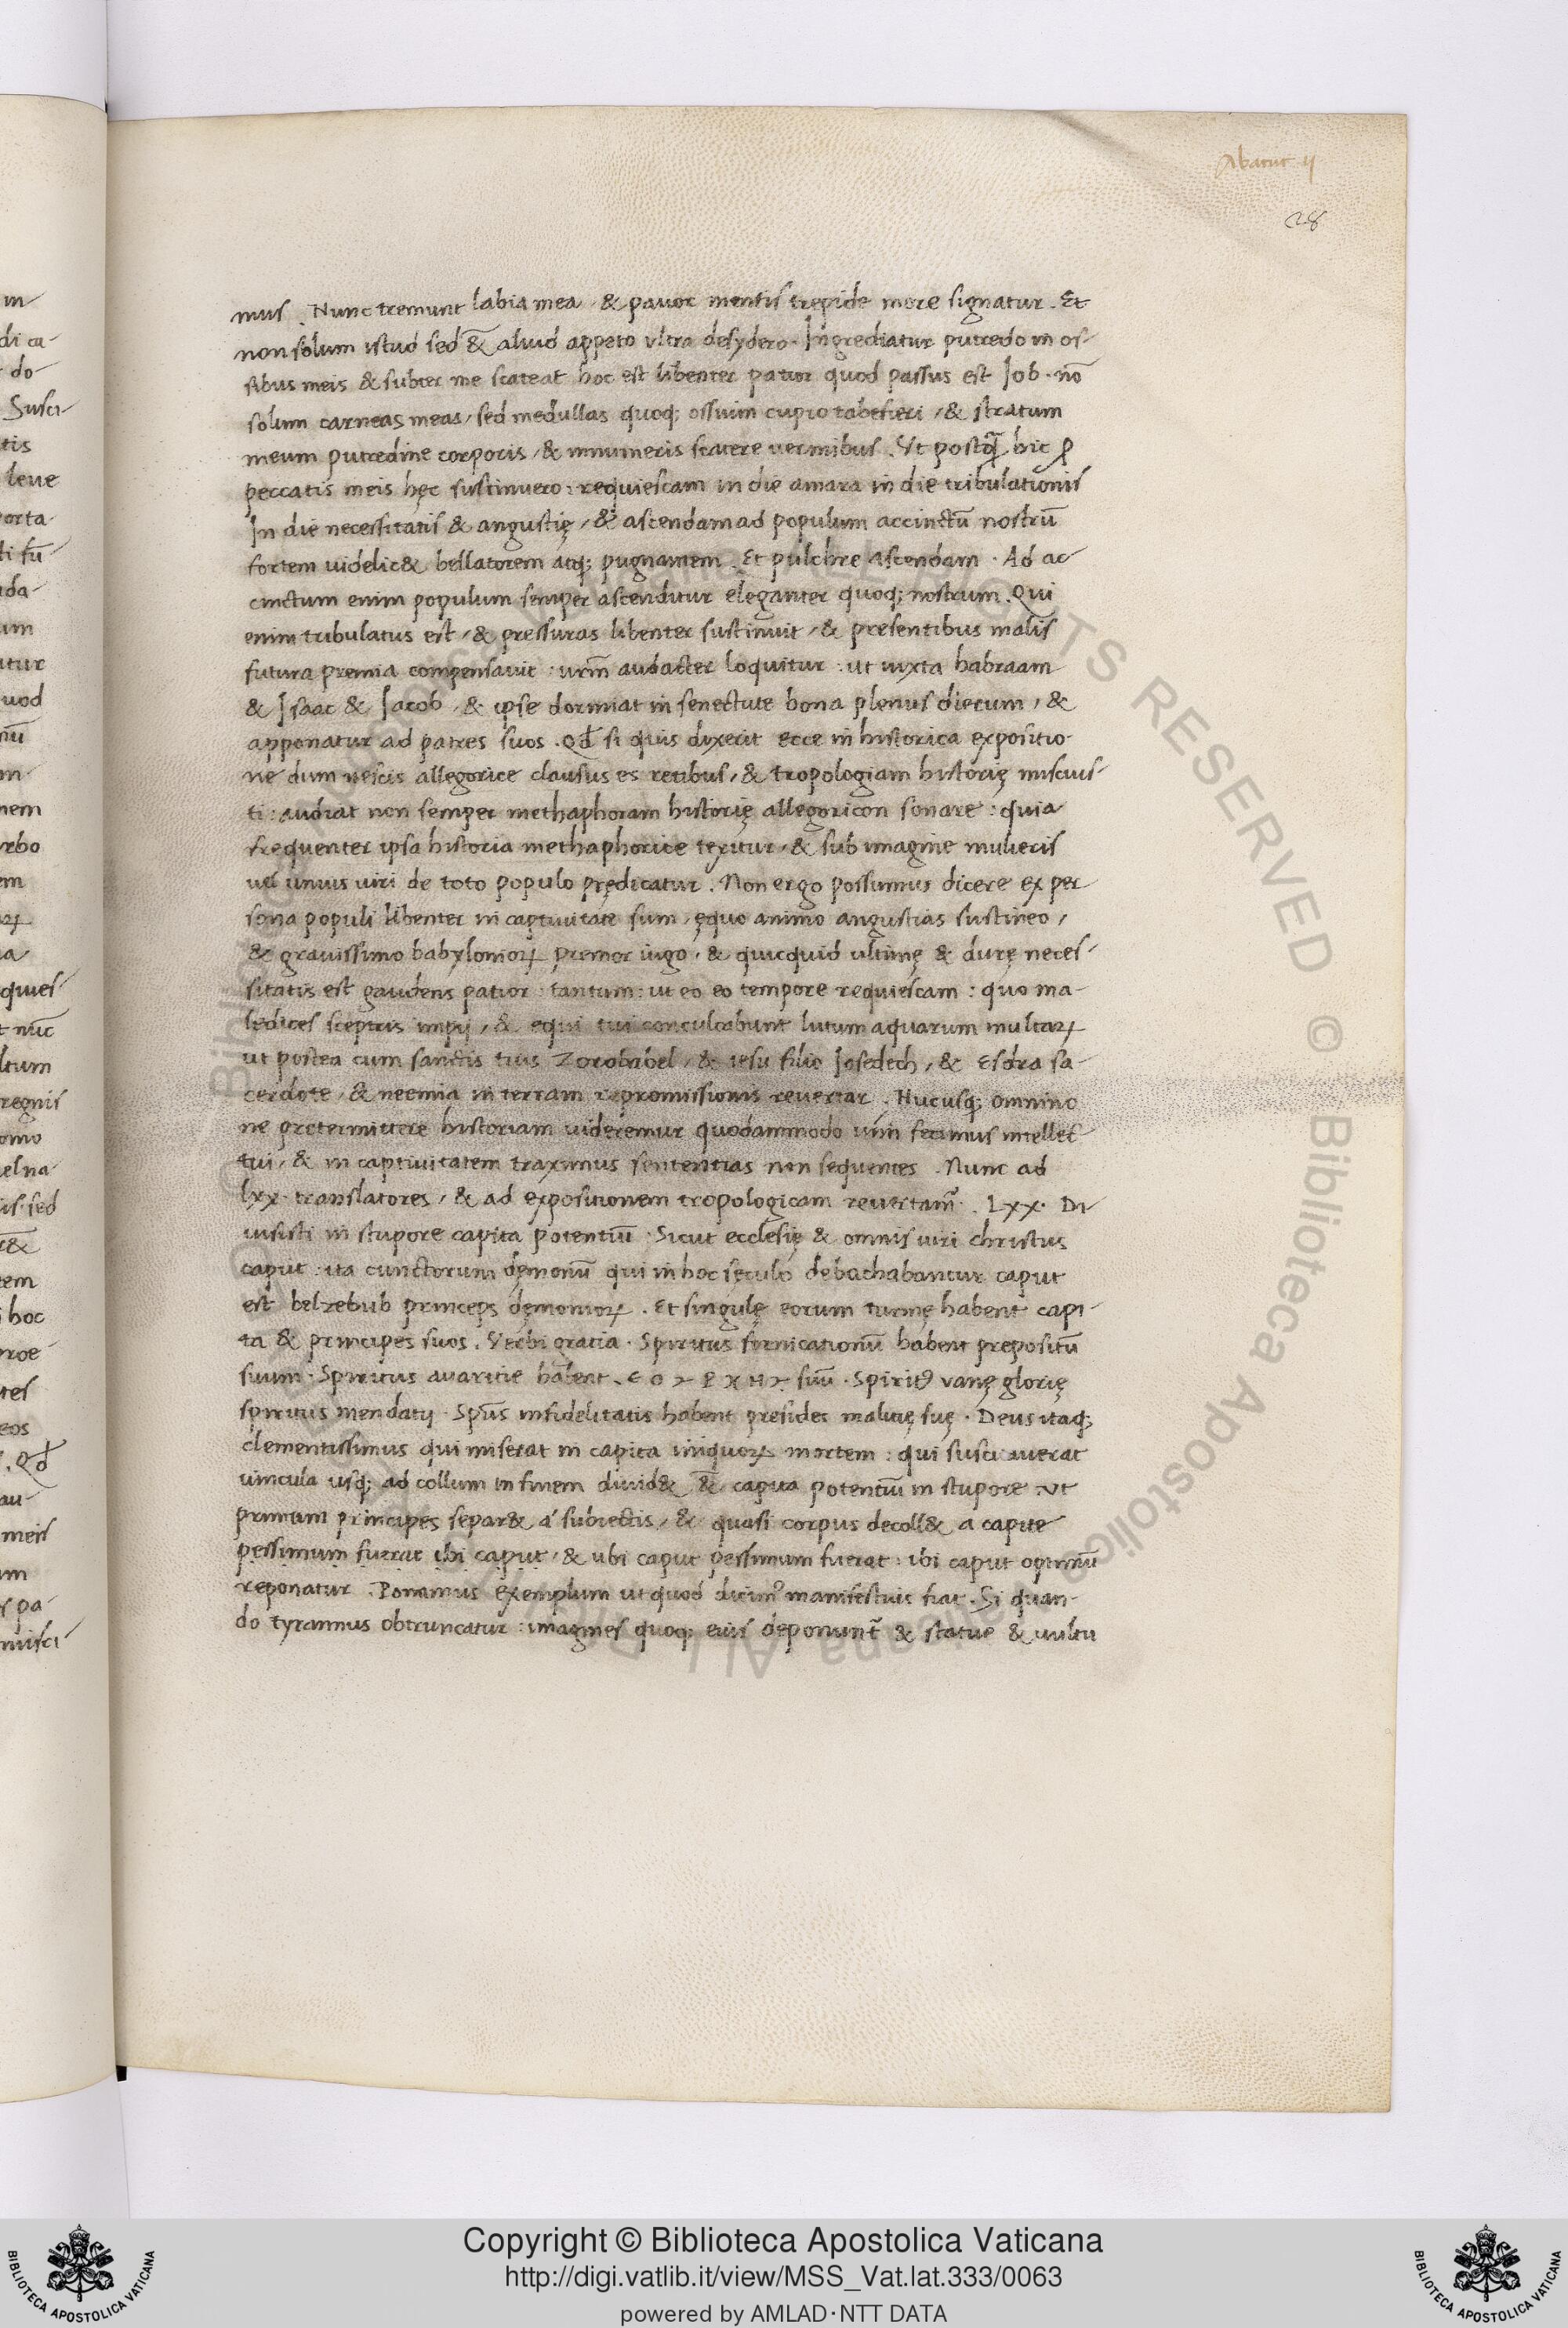 Abacuc ij
28
mus. Nunc tremunt labia mea, & pauor mentis trepide more signatur. Et
non solum istud sed &̄ aliud appeto vltra desydero. Ingrediatur putredo in os-
sibus meis & subter me scateat hoc est libenter patior quod passus est Iob. nō
solum carneas meas, sed medullas quoq; ossium cupio tabefieri, & stratum
meum putredine corporis, & innumeris scatere vermibus. Vt postq̄ hic ꝓ
peccatis meis hęc sustinuero: requiescam in die amara in die tribulationis
In die necessitatis & angustię, & ascendam ad populum accinctū nostrū
fortem uidelic& bellatorem atq; pugnantem. Et pulchre ascendam. Ad ac
cinctum enim populum semper ascenditur eleganter quoq; nostrum. Qui
enim tribulatus est, & pressuras libenter sustinuit, & presentibus malis
futura premia compensauit: audacter loquitur: ut iuxta habraam
& Isaac & Iacob, & ipse dormiat in senectute bona plenus dierum, &
apponatur ad patres suos. Qđ si quis dixerit ecce in historica expositio-
ne dum nescis allegorice clausus es retibus, & tropologiam historię miscuis-
ti: audiat non semper methaphoram historię allegoricon sonare: quia
frequenter ipsa historia methaphorice texitur, & sub imagine mulieris
uel unius uiri de toto populo prędicatur. Non ergo possumus dicere ex per
sona populi libenter in captiuitate sum, ęquo animo angustias sustineo,
& grauissimo babylonioꝝ premor iugo, & quicquid ultimę & durę neces-
sitatis est gaudens patior: tantum: ut eo eo tempore requiescam: quo ma-
ledices sceptris impij, & equi tui conculcabunt lutum aquarum multaꝝ
ut postea cum sanctis tuis Zorobabel, & iesu filio Iosedech, & Esdra sa-
cerdote, & neemia in terram repromissionis reuertar. Hucusq; omnino
ne pretermittere historiam uideremur quodammodo uim fecimus intellec
tui, & in captiuitatem traximus sententias non sequentes. Nunc ad
lxx. translatores, & ad expositionem tropologicam reuertam̄. Lxx. Di
uisisti in stupore capita potentiū. Sicut ecclesię & omnis uiri christus
caput: ita cunctorum dęmonū qui in hoc sęculo debachabantur caput
est belzebub princeps dęmonioꝝ. Et singulę eorum turmę habent capi-
ta & principes suos. Verbi gratia. Spiritus fornicationū habent prepositū
suum. Spiritus auaritie habent suū. Spirit⁹ vanę glorię
spiritus mendatij. Sp̄us infidelitatis habent presides malitię suę. Deus itaq;
clementissimus qui miserat in capita iniquoꝝ mortem: qui suscitauerat
uincula usq; ad collum in finem diuid& &̄ capita potentiū in stupore. vt
primum principes separ& a subiectis, & quasi corpus decoll& a capite
pessimum fuerat ibi caput, & ubi caput pessimum fuerat: ibi caput optimū
reponatur. Ponamus exemplum ut quod dicim⁹ manifestius fiat. Si quan-
do tyrannus obtruncatur: imagines quoq; eius deponunt̄ & statue & uultu
Copyright © Biblioteca Apostolica Vaticana
http://digi.vatlib.it/view/MSS_Vat.lat.333/0063
powered by AMLAD·NTT DATA